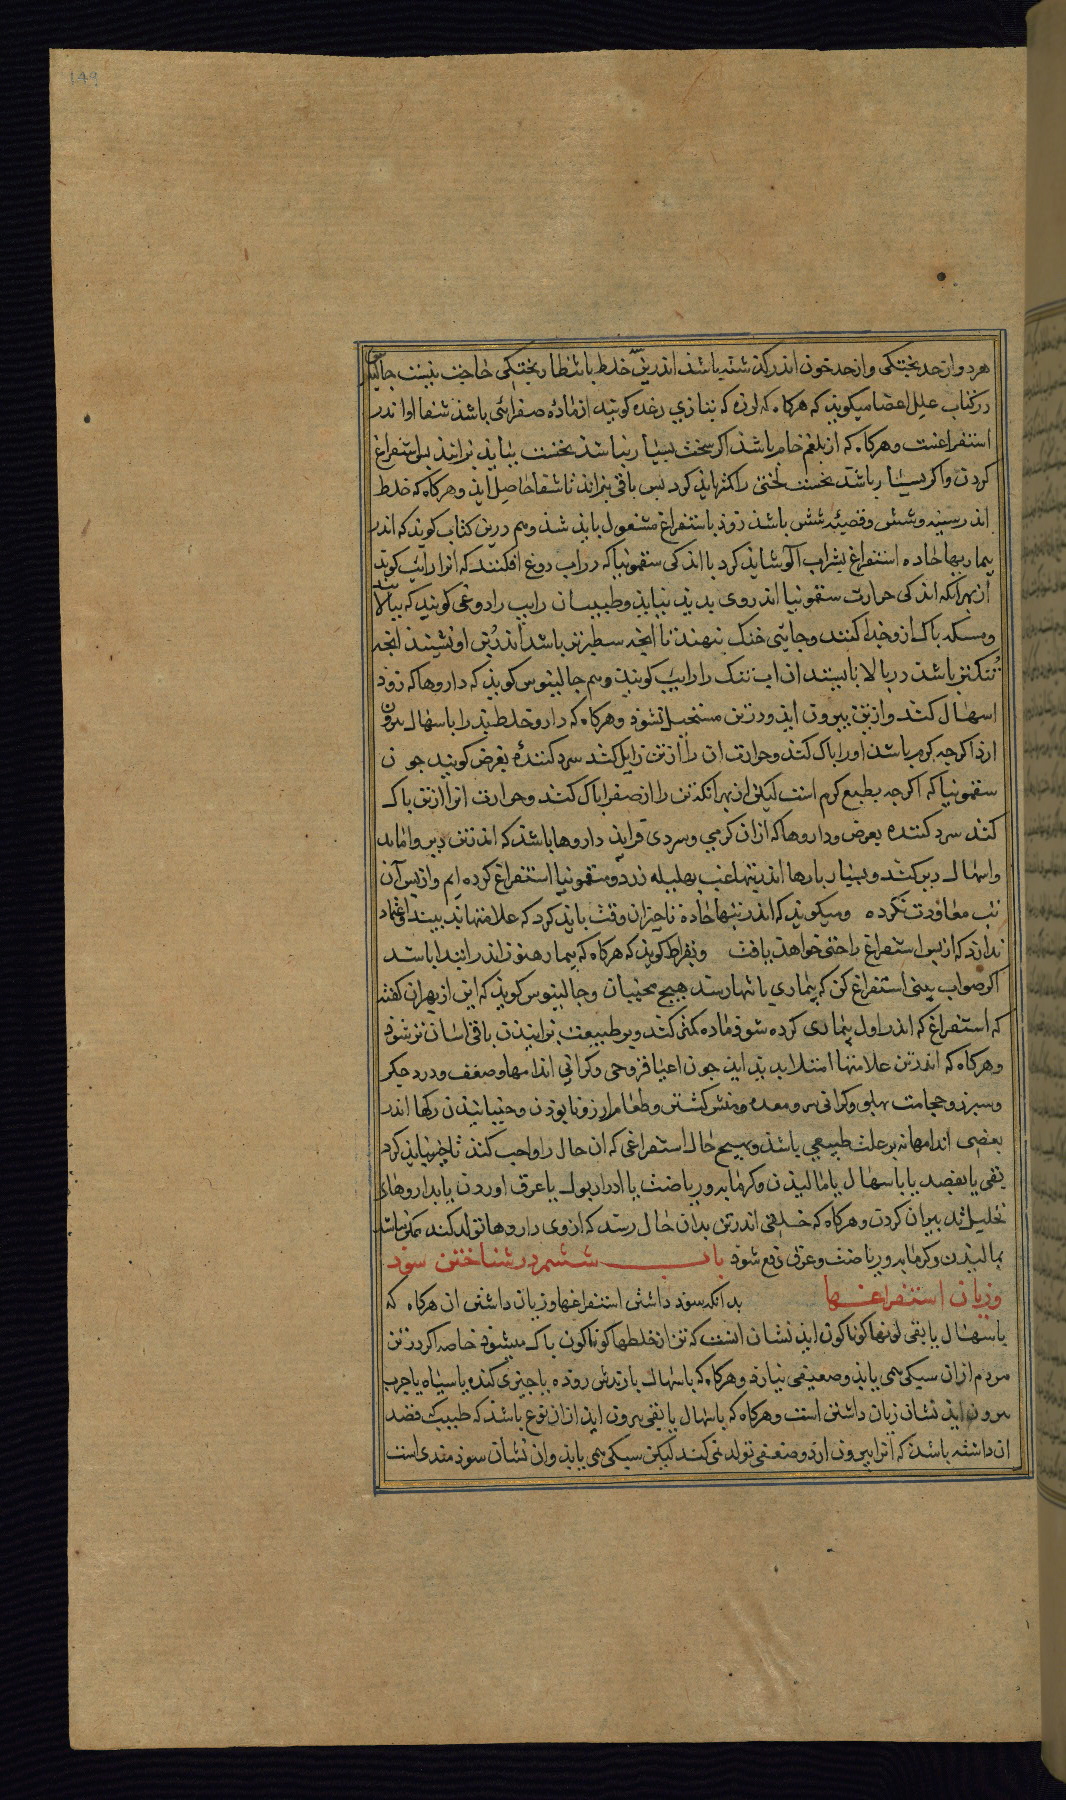 ۱۴۹
هر دو از حد پختگی و از حد خون اندر گذشته باشد اندرین خلط بانتظار پختگی حاجت نیست جالینوس
در کتاب علل اعضا میکوید که هرکاه که لرزه که بتازی رعده کویند از ماده صفرائی باشد شفا او اندر
استفراغست و هرکاه که از بلغم خام باشد اگر سخت بسیار نباشد نخست بباید پزانید پس استفراغ
کردن و اکر بسیار باشد نخست لختی راکم باید کرد پس باقی پزانند تا شفا حاصل آید و هرکاه که خلط
اندر سینه و شش و قصبه شش باشد زود باستفراغ مشغول باید شد و هم درین کتاب کوید که اندر
بیماریها حاده استفراغ بشراب آلو شاید کرد با اندکی سقمونیا که در اب دوغ افکنند که انرا رایب کویند
از بهر آنکه اندکی حرارت سقمونیا اندر وی پدید نیاید و طبیبان رایب را دوغی کویند که بپالایند
و مسکه پاک ازو جدا کنند و جایی خنک بنهند تا آنچه سطبرتر باشد اندر بن او نشیند آنچه
تنک تر باشد در بالا بایستد ان اب تنک را رایب کویند و هم جالینوس کوید که داروها که زود
اسهال کند و از تن بیرون آید و در تن مستحیل نشود و هرکاه که دارو خلط بد را باسهال بیرون
ارد اکرچه کرم باشد او را پاک کند و حرارت ان را از تن زایل کند سرد کننده بعرض کویند چون
سقمونیا که اکرچه بطبع کرم است لیکن از بهر آنکه تن را از صفرا پاک کند و حرارت انرا از تن پاک
کند سرد کننده بعرض و داروها که ازان کرمی و سردی فزاید داروها باشد که اندر تن دیر واماند
و اسهال دیر کند و بسیار بارها اندر تبها غب بهلیله زرد و سقمونیا استفراغ کرده ایم و از پس آن
تب معاودت نکرده و میکوید که اندر تبها حاده تا حران وقت باید کرد که علامتها بد بیند و اعتماد
ندارد که از پس استفراغ راحتی خواهد یافت و بقراط کوید که هرکاه که بیمار هنوز اندر ابتدا باشد
اکر صواب بینی استفراغ کن که بیماری بانتها رسد هیچ مجنبان و جالینوس کوید که این از بهر ان کفته
که استفراغ که اندر اول بیماری کرده شود ماده کمتر کند و بر طبیعت پزانیدن باقی اسان تر شود
و هرکاه که اندر تن علامتها امتلا پدید اید چون اعیا قروحی و کرانی اندامها و ضعف و درد جکر
و سپرز و حجامت پهلو و کرانی سر و معده و منش کشتن و طعام ارزو نا بودن و جنبانیدن رکها اندر
بعضی اندامها نه بر علت طبیعی باشد و بهیچ حال استفراغی که ان حال را واجب کند تاخیر نباید کرد
بقی یا بفصد یا باسهال یا مالیدن و کرمابه و ریاضت یا ادرار بول یا عرق اوردن یا بداروهای
تحلیل تدبیر ان کردن و هرکاه که خلطی اندر تن بدان حال رسد که از وی داروها تولد کند ممکن نباشد
بمالیدن و کرمابه و ریاضت و عرق دفع شود باب ششم در شناختن سود
و زیان استفراغها بدانکه سود داشتن استفراغها و زیان داشتن ان هرکاه که
باسهال یا بقی لونها کوناکون اید نشان انست که تن از خلطها کوناکون پاک میشود خاصه اکر در تن
مردم ازان سبکی همی یابد و ضعیفی نیارد و هرکاه که باسهال یا رندش روده یا چیزی کنده یا سیاه یا چرب
بیرون اید نشان زیان داشتن است و هرکاه که باسهال یا بقی بیرون اید ازان نوع باشد که طبیب قصد
ان داشته باشد که انرا بیرون ارد و ضعفی تولد نمی کند لیکن سبکی همی یابد و ان نشان سودمندی است